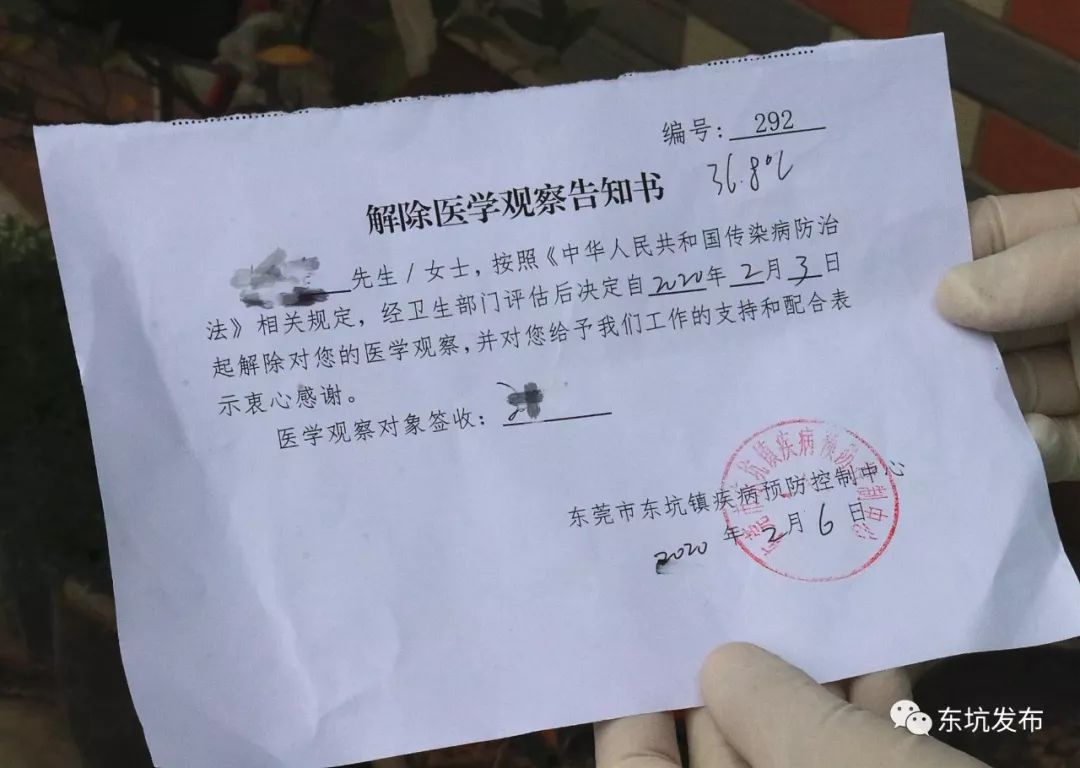 编号：292
36.8℃
解除医学观察告知书
先生／女士，按照《中华人民共和国传染病防治
法》相关规定，经卫生部门评估后决定自2020年2月3日
起解除对您的医学观察，并对您给予我们工作的支持和配合表
示衷心感谢。
医学观察对象签收：
东莞市东坑镇疾病预防控制中心
2020年2月6日
东坑发布